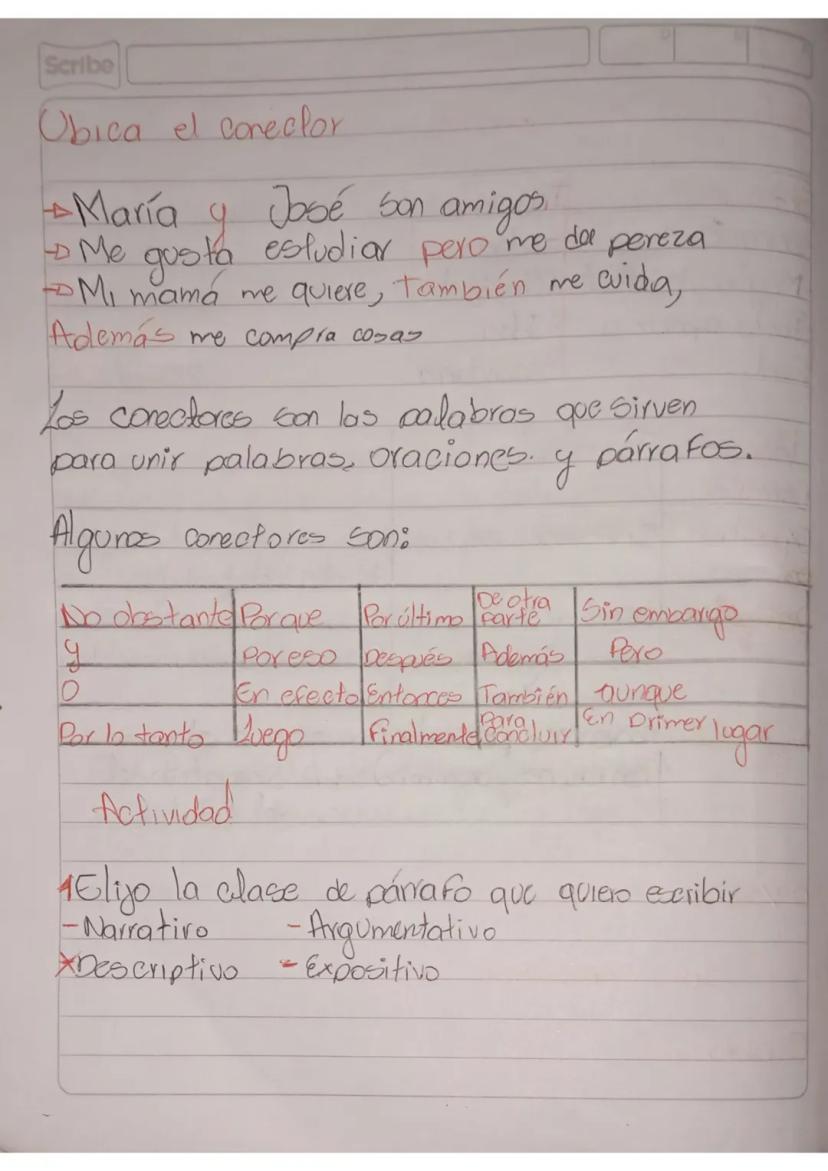 Scribe
Ubica el conector
→María y José son amigos
→Me gusta estudiar pero me da pereza
→Mi mamá me quiere, también me cuida,
Además me compra cosas
Los conectores son las palabras que sirven
para unir palabras, oraciones. y párrafos.
Algunos conectores son:
No obstante Porque Por último De otra parte Sin embargo
y Por eso Después Además Pero
O En efecto Entonces También aunque
Por lo tanto luego finalmente Para concluir En primer lugar
Actividad
1 Elijo la clase de párrafo que quiero escribir
- Narrativo - Argumentativo
x Descriptivo - Expositivo